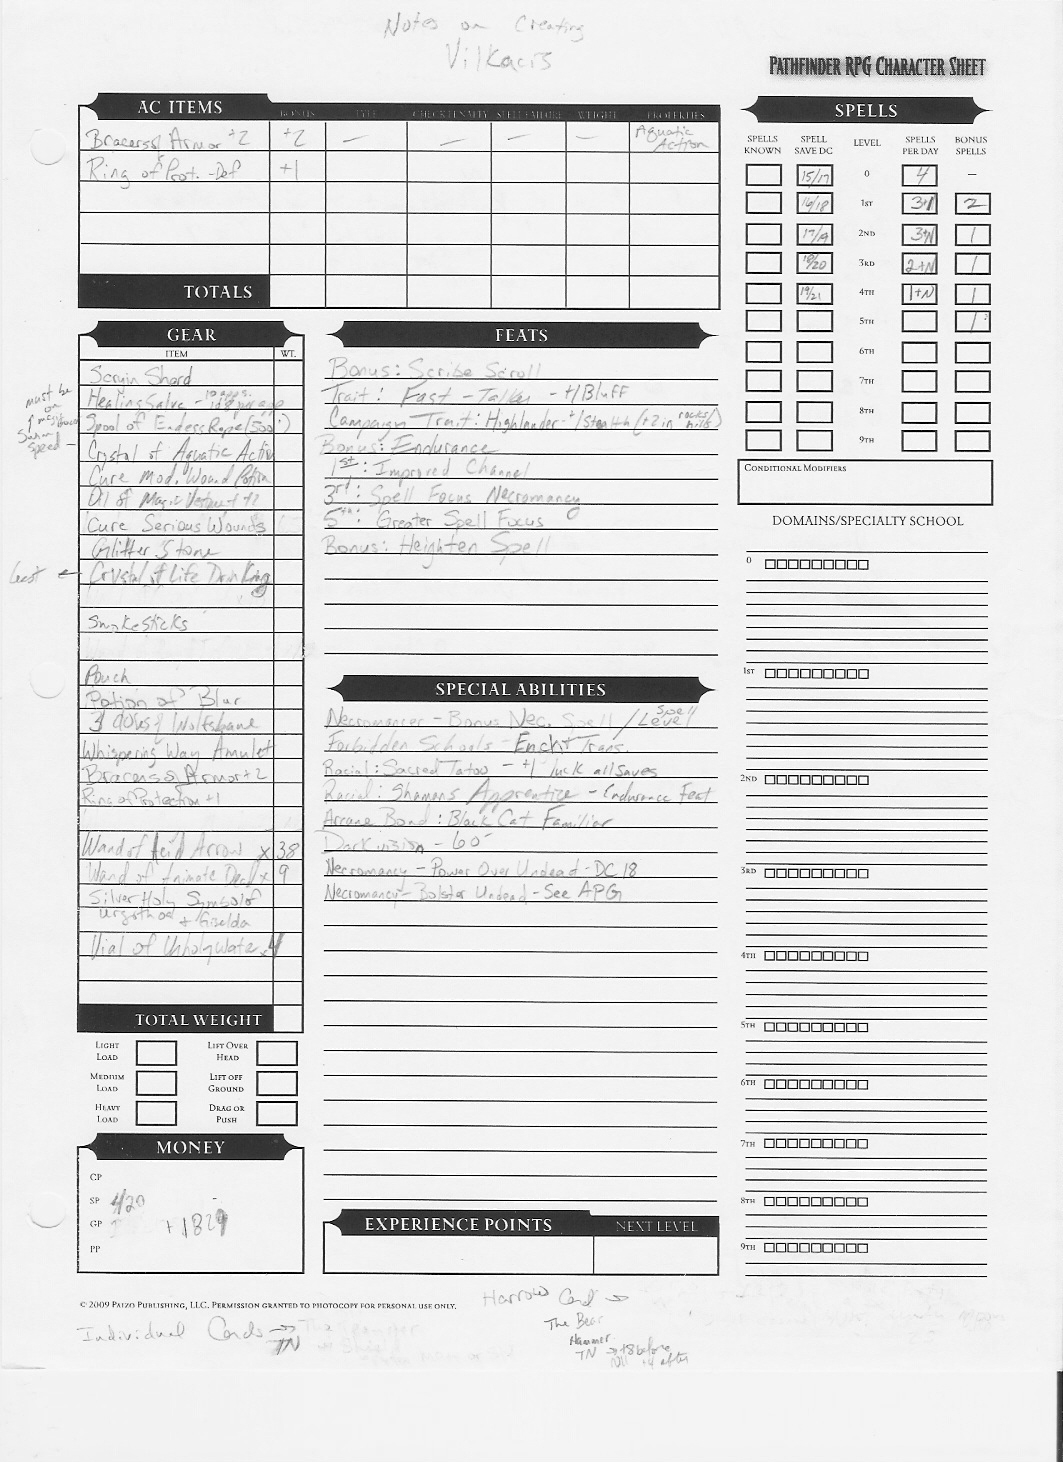 Notes on Creating
Vilkacis
PATHFINDER RPG CHARACTER SHEET
AC ITEMS
BONUS TYPE CHECK PENALTY SPELL FAILURE WEIGHT PROPERTIES
Bracers of Armor +2 +2 — — — — Aquatic Action
Ring of Prot. -Def +1
TOTALS
SPELLS
SPELLS KNOWN SPELL SAVE DC LEVEL SPELLS PER DAY BONUS SPELLS
15/17 0 4 —
16/18 1ST 3+N 2
17/19 2ND 3+N 1
18/20 3RD 2+N 1
19/21 4TH 1+N 1
5TH 1
6TH
7TH
8TH
9TH
CONDITIONAL MODIFIERS
DOMAINS/SPECIALTY SCHOOL
0
1ST
2ND
3RD
4TH
5TH
6TH
7TH
8TH
9TH
GEAR
ITEM WT.
Healing Salve - 10 apps.
must be on
Spool of Endess Rope (500')
Swim speed
Crystal of Aquatic Action
Cure Mod. Wound Potion
Cure Serious Wounds
Glitter Stone
least ← Crystal of Life Drinking
Smokesticks
Pouch
Potion of Blur
3 doses of Wolfsbane
Whispering Way Amulet
Bracers of Armor +2
Ring of Protection +1
Wand of Acid Arrow x 38
Wand of Animate Dead x 9
Silver Holy Symbol of
Urgathoa + Giselda
Vial of Unholy Water x4
TOTAL WEIGHT
LIGHT LOAD LIFT OVER HEAD
MEDIUM LOAD LIFT OFF GROUND
HEAVY LOAD DRAG OR PUSH
MONEY
CP
SP 4/20
GP +1829
PP
FEATS
Bonus: Scribe Scroll
Trait: Fast - Talker - +1 Bluff
Campaign Trait: Highlander - +1 Stealth (+2 in rocks/hills)
Bonus: Endurance
1st: Improved Channel
3rd: Spell Focus Necromancy
5th: Greater Spell Focus
Bonus: Heighten Spell
SPECIAL ABILITIES
Necromancer - Bonus Nec. Spell / Spell Level
Forbidden Schools - Ench + Trans.
Racial: Sacred Tatoo - +1 luck all Saves
Racial: Shamans Apprentice - Endurance Feat
Arcane Bond: Black Cat Familiar
Darkvision - 60'
Necromancy - Power Over Undead - DC 18
Necromancy - Bolster Undead - See APG
EXPERIENCE POINTS NEXT LEVEL
© 2009 PAIZO PUBLISHING, LLC. PERMISSION GRANTED TO PHOTOCOPY FOR PERSONAL USE ONLY.
Harrow Card →
The Bear
Hammer
TN → +8 before
+4 after
Individual Cards → TN